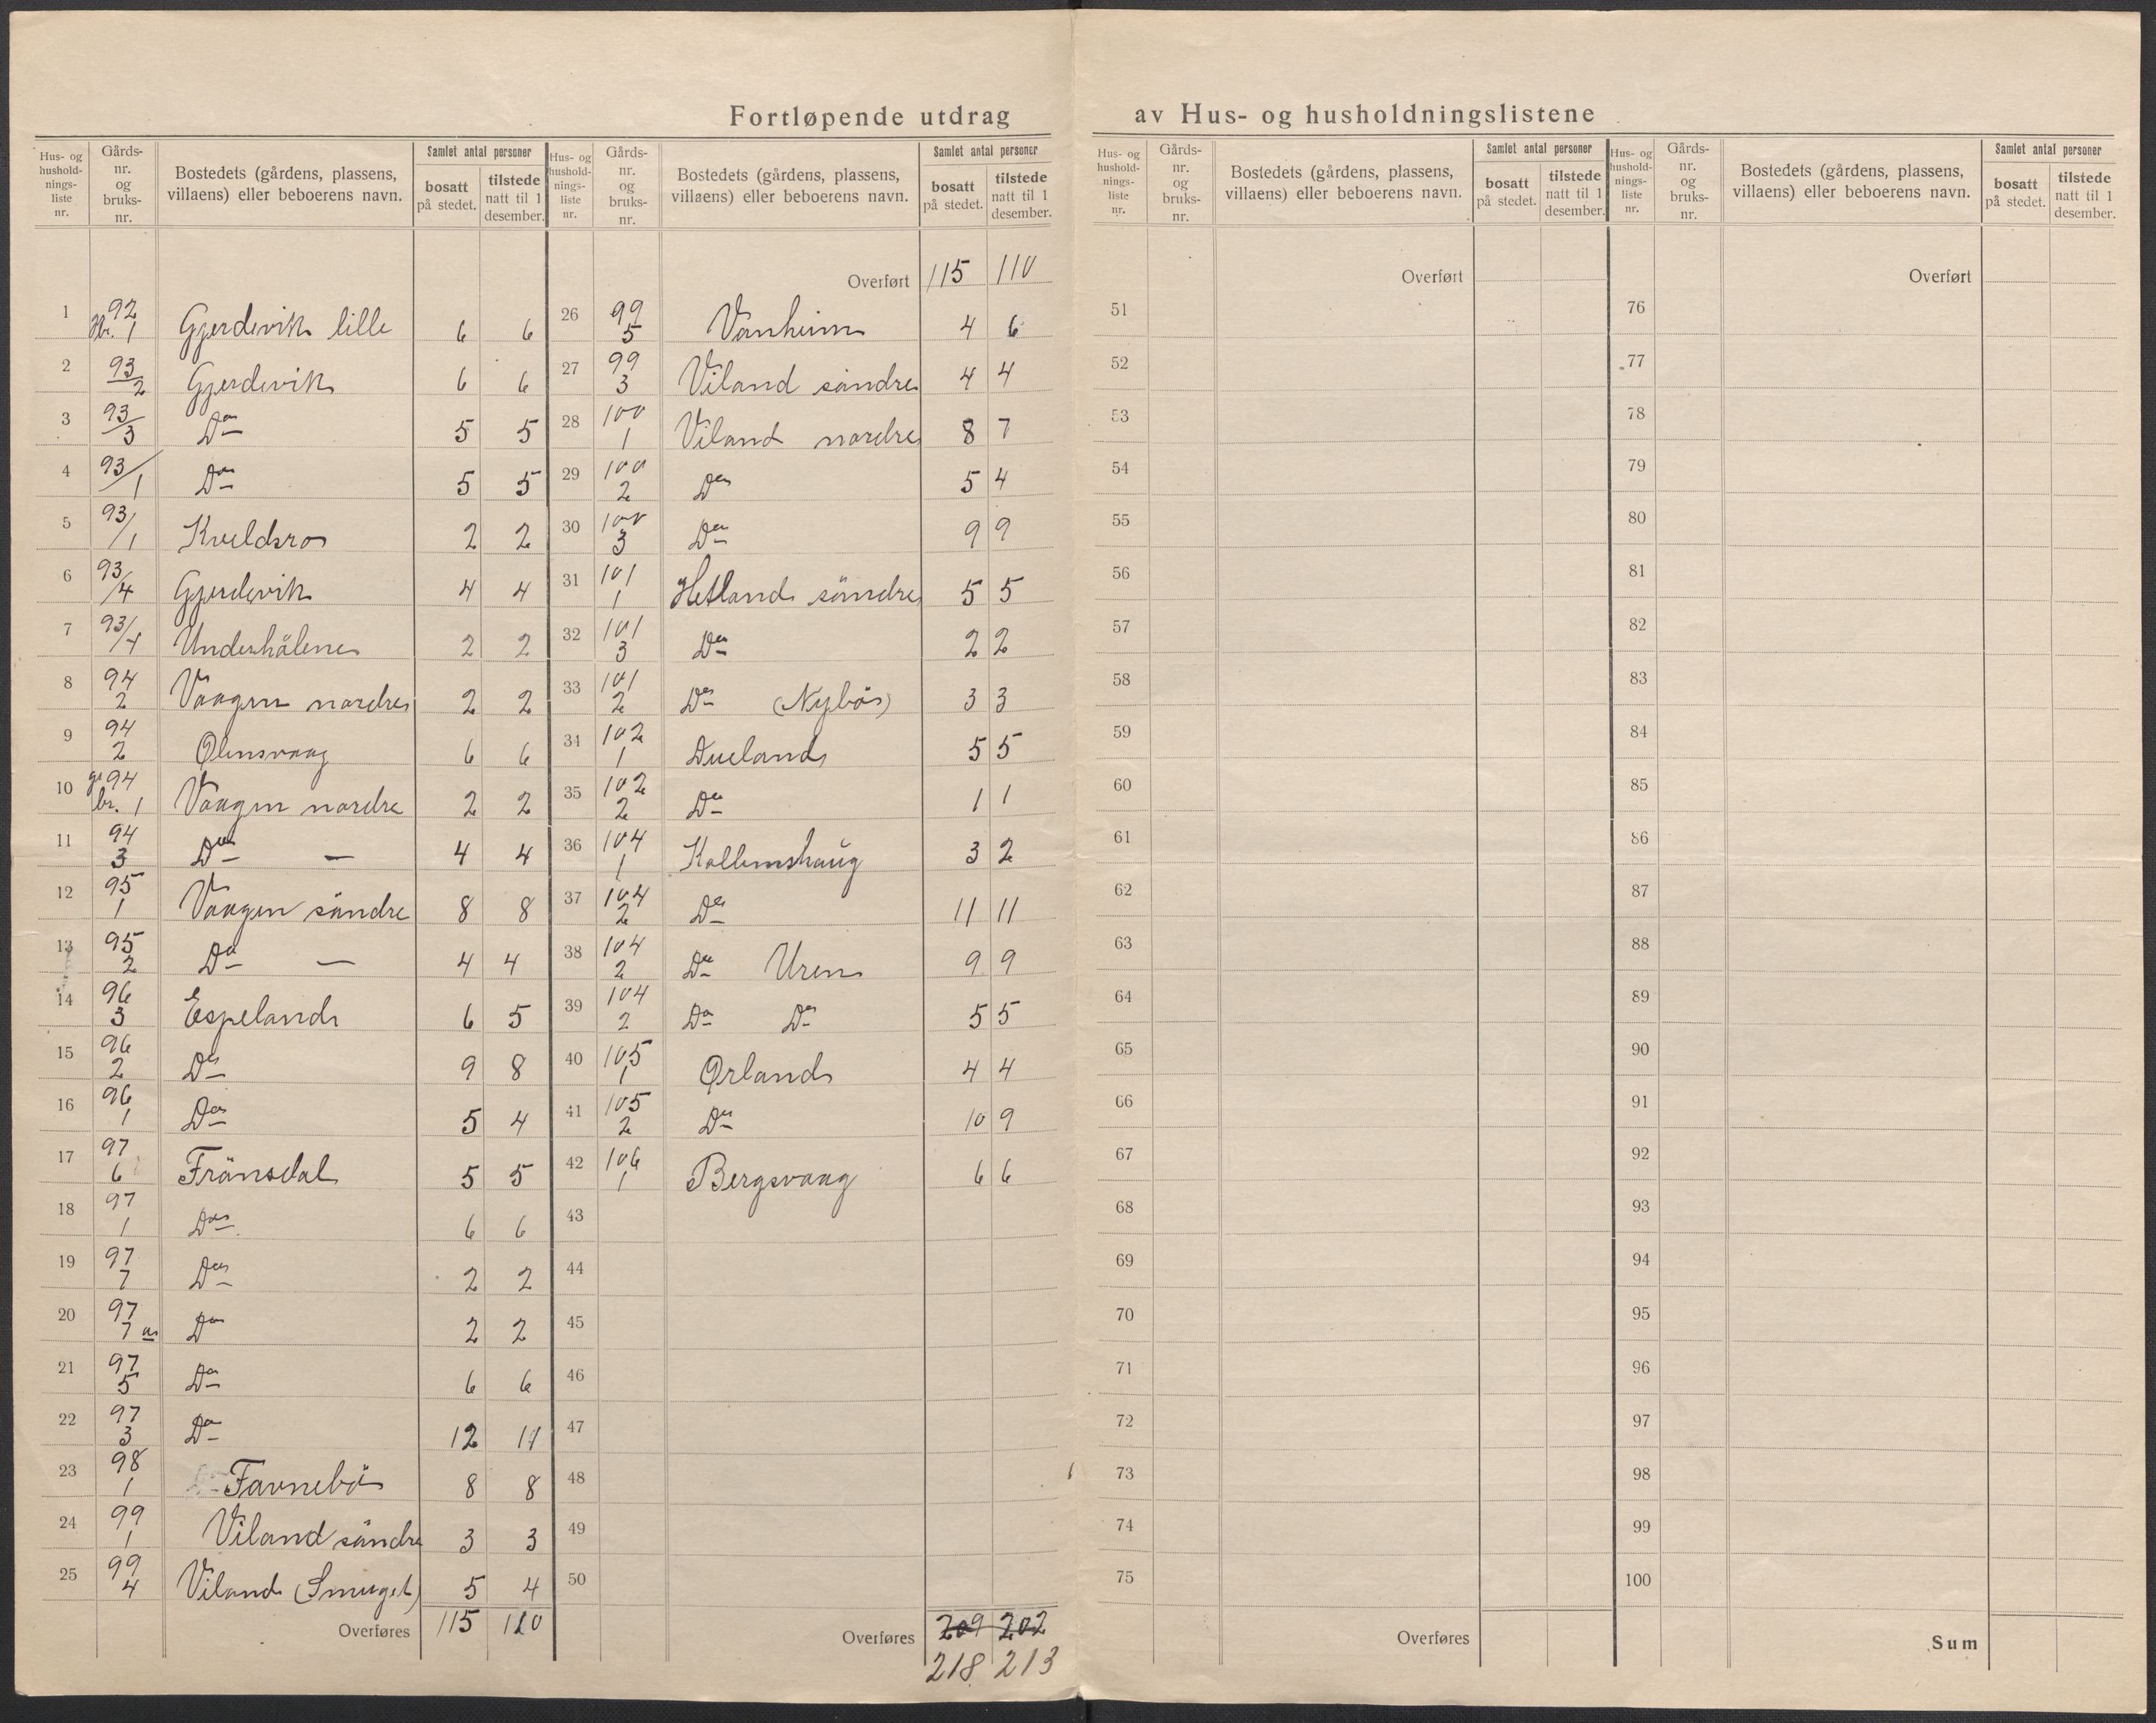 Fortløpende utdrag av Hus- og husholdningslistene
Hus- og husholdningsliste nr.
Gårds- nr. og bruks- nr.
Bostedets (gårdens, plassens, villaens) eller beboerens navn.
Samlet antal personer
bosatt på stedet.
tilstede natt til 1 desember.
1 92 Gbr. 1 Gjerdevik lille 6 6
2 93/2 Gjerdevik 6 6
3 93/3 Do 5 5
4 93/1 Do 5 5
5 93/1 Kveldsro 2 2
6 93/4 Gjerdevik 4 4
7 93/4 Underhålene 2 2
8 94 2 Vaagen nordre 2 2
9 94 2 Ølensvaag 6 6
10 94 br. 1 Vaagen nordre 2 2
11 94 3 Do — 4 4
12 95 1 Vaagen söndre 8 8
13 95 2 Do — 4 4
14 96 3 Espeland 6 5
15 96 2 Do 9 8
16 96 1 Do 5 4
17 97 6 Frönsdal 5 5
18 97 1 Do 6 6
19 97 7 Do 2 2
20 97 7 a Do 2 2
21 97 5 Do 6 6
22 97 3 Do 12 11
23 98 1 Favnebö 8 8
24 99 1 Viland söndre 3 3
25 99 4 Viland (Smuget) 5 4
Overføres 115 110
Hus- og husholdningsliste nr.
Gårds- nr. og bruks- nr.
Bostedets (gårdens, plassens, villaens) eller beboerens navn.
Samlet antal personer
bosatt på stedet.
tilstede natt til 1 desember.
Overført 115 110
26 99 5 Vanheim 4 6
27 99 3 Viland söndre 4 4
28 100 1 Viland nordre 8 7
29 100 2 Do 5 4
30 100 3 Do 9 9
31 101 1 Hetland söndre 5 5
32 101 3 Do 2 2
33 101 2 Do (Nybö) 3 3
34 102 1 Dueland 5 5
35 102 2 Do 1 1
36 104 1 Kallemshaug 3 2
37 104 2 Do 11 11
38 104 2 Do Uren 9 9
39 104 2 Do Do 5 5
40 105 1 Ørland 4 4
41 105 2 Do 10 9
42 106 1 Bergsvaag 6 6
43
44
45
46
47
48
49
50
Overføres 209 202
218 213
Hus- og husholdningsliste nr.
Gårds- nr. og bruks- nr.
Bostedets (gårdens, plassens, villaens) eller beboerens navn.
Samlet antal personer
bosatt på stedet.
tilstede natt til 1 desember.
Overført
51
52
53
54
55
56
57
58
59
60
61
62
63
64
65
66
67
68
69
70
71
72
73
74
75
Overføres
Hus- og husholdningsliste nr.
Gårds- nr. og bruks- nr.
Bostedets (gårdens, plassens, villaens) eller beboerens navn.
Samlet antal personer
bosatt på stedet.
tilstede natt til 1 desember.
Overført
76
77
78
79
80
81
82
83
84
85
86
87
88
89
90
91
92
93
94
95
96
97
98
99
100
Sum